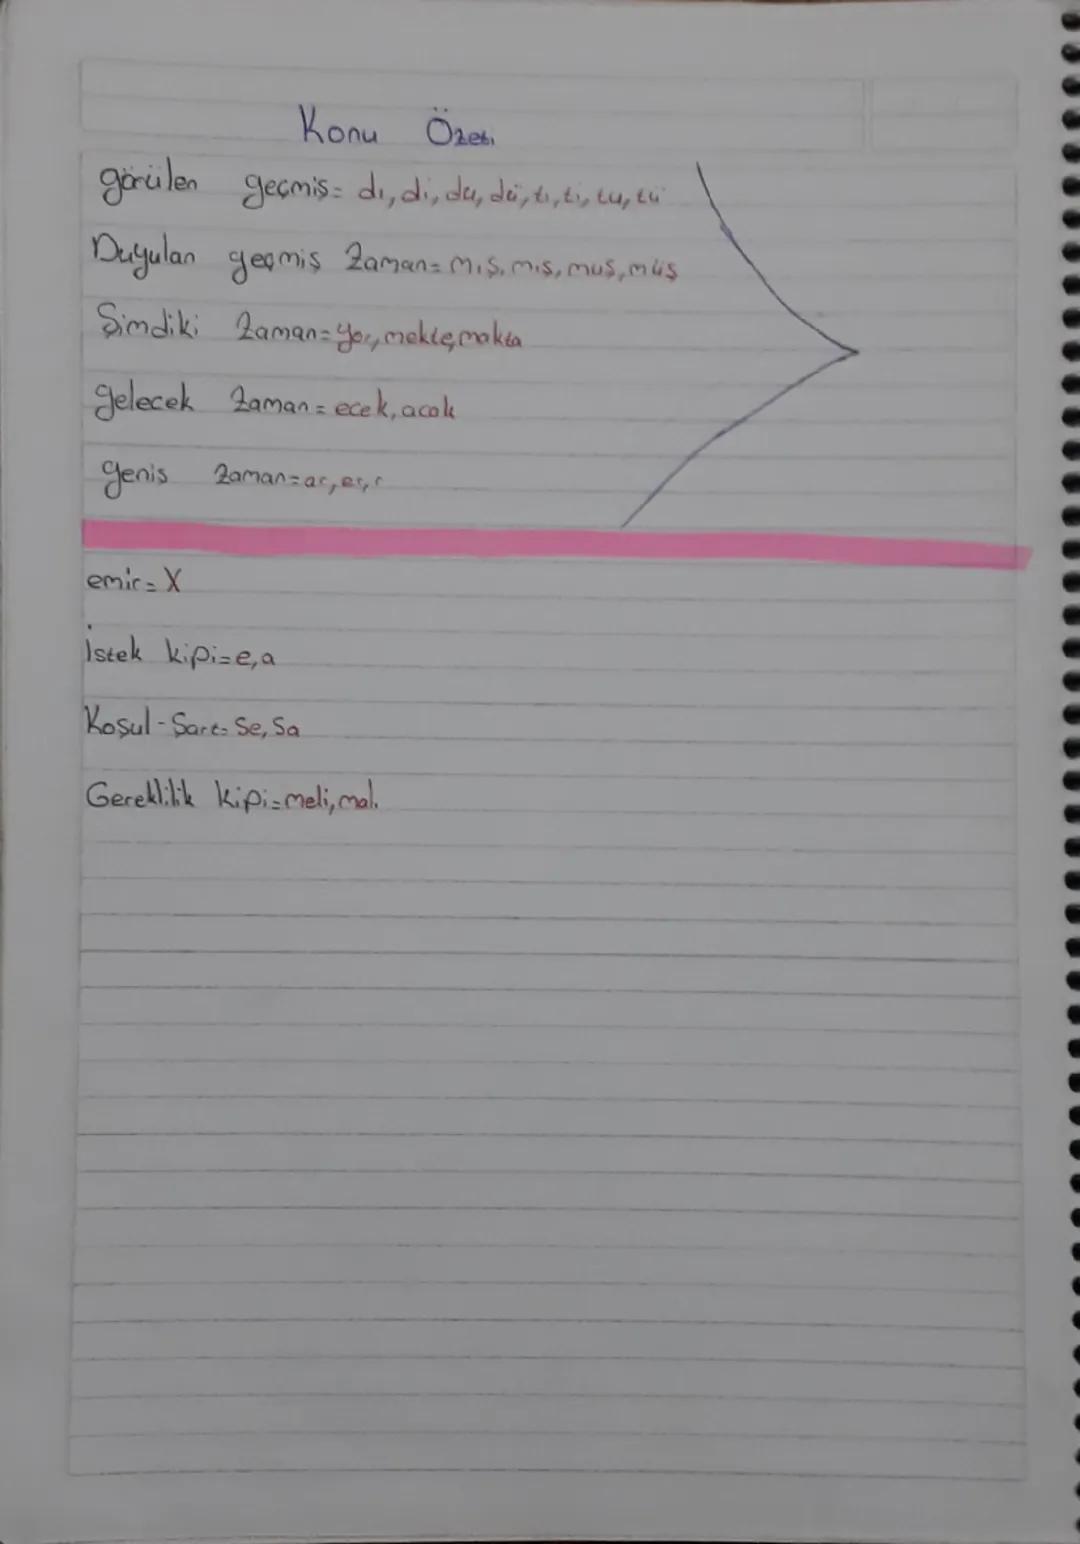 Konu Özeti
görülen geçmiş= dı, di, du, dü, tı, ti, tu, tü
Duyulan geçmiş Zaman= mış, miş, muş, müş
Şimdiki Zaman= yor, mekte, makta
gelecek Zaman= ecek, acak
genis Zaman= ar, er, r
emir= X
İstek kipi= e, a
Koşul-Şart= Se, Sa
Gereklilik kipi= meli, malı